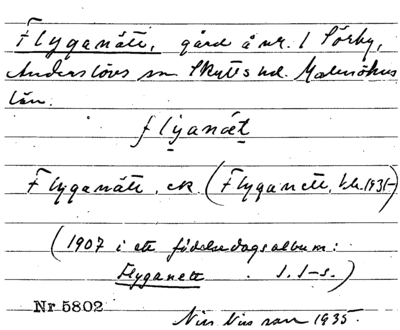 Flyganätt, gård å nr. 1 Sörby,
Anderslövs sn Skytts hd. Malmöhus
län.
flyanæt
Flyganätt, ek (Flyganett, kb. 1931-)
(1907 i ett födelsedagsalbum:
Flyganett . I. I-s.)
Nr 5802
Nils Nilsson 1935.